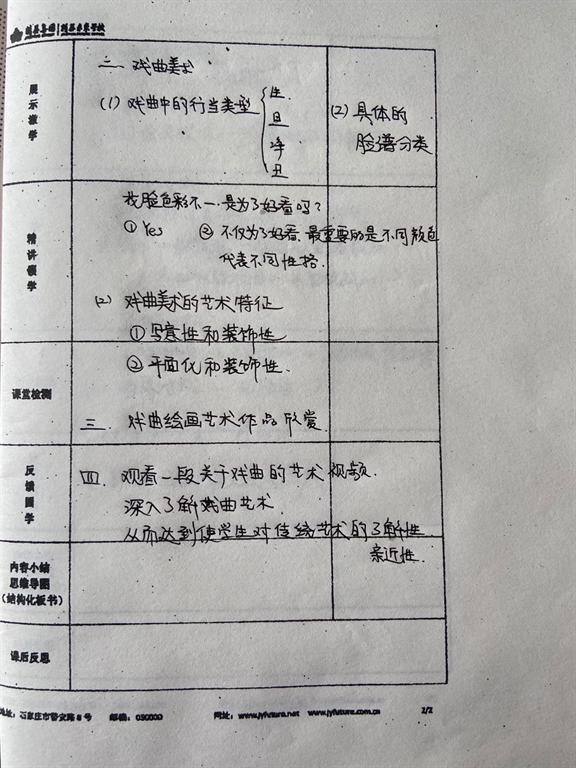 精英集团 | 精英未来学校
展示激学
二 戏曲美术
(1) 戏曲中的行当类型
生
旦
净
丑
(2) 具体的
脸谱分类
精讲领学
找脸色彩不一·是为了好看吗？
① Yes ② 不仅为了好看、最重要的是不同颜色
代表不同性格.
(2) 戏曲美术的艺术特征
① 写意性和装饰性
② 平面化和装饰性.
课堂检测
三. 戏曲绘画艺术作品欣赏
反馈固学
四. 观看一段关于戏曲的艺术视频.
深入了解戏曲艺术.
从而达到使学生对传统艺术的了解性.
亲近性.
内容小结
思维导图
（结构化板书）
课后反思
地址：石家庄市普安路8号 邮编：050000 网址：www.jyfuture.net www.jyfuture.com.cn 2/2